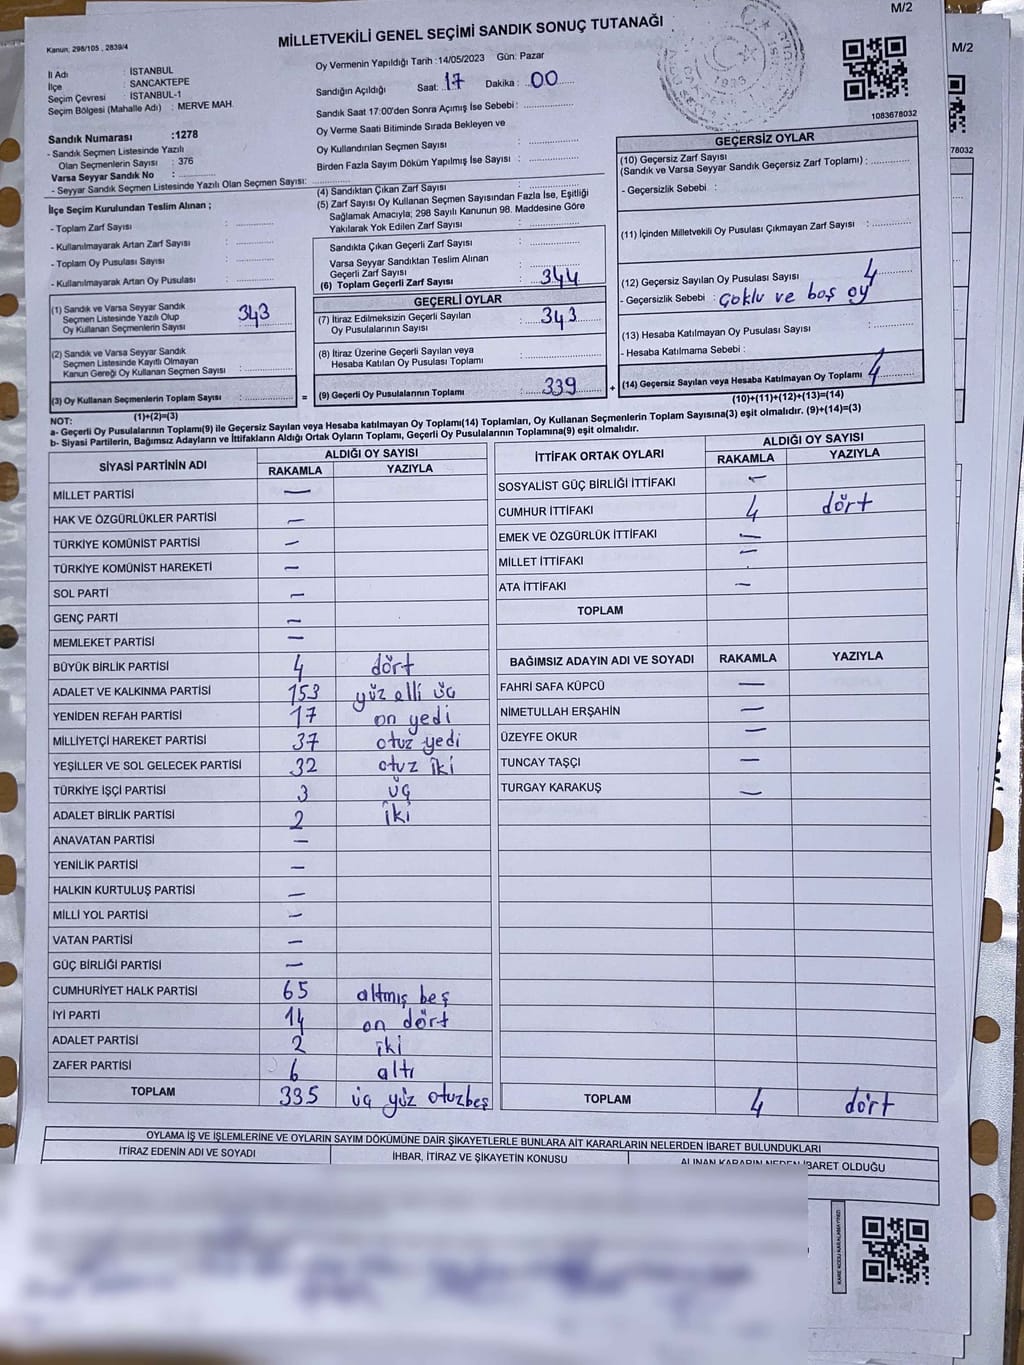 M/2
Kanun; 298/105 , 2839/4
MİLLETVEKİLİ GENEL SEÇİMİ SANDIK SONUÇ TUTANAĞI
İl Adı : İSTANBUL
İlçe : SANCAKTEPE
Seçim Çevresi : İSTANBUL-1
Seçim Bölgesi (Mahalle Adı) : MERVE MAH.
Sandık Numarası :1278
- Sandık Seçmen Listesinde Yazılı
Olan Seçmenlerin Sayısı : 376
Varsa Seyyar Sandık No :
- Seyyar Sandık Seçmen Listesinde Yazılı Olan Seçmen Sayısı:
İlçe Seçim Kurulundan Teslim Alınan ;
- Toplam Zarf Sayısı :
- Kullanılmayarak Artan Zarf Sayısı :
- Toplam Oy Pusulası Sayısı :
- Kullanılmayarak Artan Oy Pusulası :
(1) Sandık ve Varsa Seyyar Sandık
Seçmen Listesinde Yazılı Olup
Oy Kullanan Seçmenlerin Sayısı : 343
(2) Sandık ve Varsa Seyyar Sandık
Seçmen Listesinde Kayıtlı Olmayan
Kanun Gereği Oy Kullanan Seçmen Sayısı :
(3) Oy Kullanan Seçmenlerin Toplam Sayısı :
(1)+(2)=(3)
Oy Vermenin Yapıldığı Tarih :14/05/2023 Gün: Pazar
Sandığın Açıldığı Saat: 17 Dakika : 00
Sandık Saat 17:00'den Sonra Açımış İse Sebebi :
Oy Verme Saati Bitiminde Sırada Bekleyen ve
Oy Kullandırılan Seçmen Sayısı :
Birden Fazla Sayım Döküm Yapılmış İse Sayısı :
(4) Sandıktan Çıkan Zarf Sayısı :
(5) Zarf Sayısı Oy Kullanan Seçmen Sayısından Fazla İse, Eşitliği
Sağlamak Amacıyla; 298 Sayılı Kanunun 98. Maddesine Göre
Yakılarak Yok Edilen Zarf Sayısı :
Sandıkta Çıkan Geçerli Zarf Sayısı :
Varsa Seyyar Sandıktan Teslim Alınan
Geçerli Zarf Sayısı :
(6) Toplam Geçerli Zarf Sayısı : 344
GEÇERLİ OYLAR
(7) İtiraz Edilmeksizin Geçerli Sayılan
Oy Pusulalarının Sayısı : 343
(8) İtiraz Üzerine Geçerli Sayılan veya
Hesaba Katılan Oy Pusulası Toplamı :
= (9) Geçerli Oy Pusulalarının Toplamı : 339 +
1083678032
GEÇERSİZ OYLAR
(10) Geçersiz Zarf Sayısı
(Sandık ve Varsa Seyyar Sandık Geçersiz Zarf Toplamı) :
- Geçersizlik Sebebi :
(11) İçinden Milletvekili Oy Pusulası Çıkmayan Zarf Sayısı :
(12) Geçersiz Sayılan Oy Pusulası Sayısı : 4
- Geçersizlik Sebebi : Çoklu ve boş oy
(13) Hesaba Katılmayan Oy Pusulası Sayısı :
- Hesaba Katılmama Sebebi :
(14) Geçersiz Sayılan veya Hesaba Katılmayan Oy Toplamı : 4
(10)+(11)+(12)+(13)=(14)
NOT:
a- Geçerli Oy Pusulalarının Toplamı(9) ile Geçersiz Sayılan veya Hesaba katılmayan Oy Toplamı(14) Toplamları, Oy Kullanan Seçmenlerin Toplam Sayısına(3) eşit olmalıdır. (9)+(14)=(3)
b- Siyasi Partilerin, Bağımsız Adayların ve İttifakların Aldığı Ortak Oyların Toplamı, Geçerli Oy Pusulalarının Toplamına(9) eşit olmalıdır.
SİYASİ PARTİNİN ADI ALDIĞI OY SAYISI
RAKAMLA YAZIYLA
MİLLET PARTİSİ —
HAK VE ÖZGÜRLÜKLER PARTİSİ —
TÜRKİYE KOMÜNİST PARTİSİ —
TÜRKİYE KOMÜNİST HAREKETİ —
SOL PARTİ —
GENÇ PARTİ —
MEMLEKET PARTİSİ —
BÜYÜK BİRLİK PARTİSİ 4 dört
ADALET VE KALKINMA PARTİSİ 153 yüz elli üç
YENİDEN REFAH PARTİSİ 17 on yedi
MİLLİYETÇİ HAREKET PARTİSİ 37 otuz yedi
YEŞİLLER VE SOL GELECEK PARTİSİ 32 otuz iki
TÜRKİYE İŞÇİ PARTİSİ 3 üç
ADALET BİRLİK PARTİSİ 2 iki
ANAVATAN PARTİSİ —
YENİLİK PARTİSİ —
HALKIN KURTULUŞ PARTİSİ —
MİLLİ YOL PARTİSİ —
VATAN PARTİSİ —
GÜÇ BİRLİĞİ PARTİSİ —
CUMHURİYET HALK PARTİSİ 65 altmış beş
İYİ PARTİ 14 on dört
ADALET PARTİSİ 2 iki
ZAFER PARTİSİ 6 altı
TOPLAM 335 üç yüz otuzbeş
İTTİFAK ORTAK OYLARI ALDIĞI OY SAYISI
RAKAMLA YAZIYLA
SOSYALİST GÜÇ BİRLİĞİ İTTİFAKI —
CUMHUR İTTİFAKI 4 dört
EMEK VE ÖZGÜRLÜK İTTİFAKI —
MİLLET İTTİFAKI —
ATA İTTİFAKI —
TOPLAM
BAĞIMSIZ ADAYIN ADI VE SOYADI RAKAMLA YAZIYLA
FAHRİ SAFA KÜPCÜ —
NİMETULLAH ERŞAHİN —
ÜZEYFE OKUR —
TUNCAY TAŞÇI —
TURGAY KARAKUŞ —
TOPLAM 4 dört
OYLAMA İŞ VE İŞLEMLERİNE VE OYLARIN SAYIM DÖKÜMÜNE DAİR ŞİKAYETLERLE BUNLARA AİT KARARLARIN NELERDEN İBARET BULUNDUKLARI
İTİRAZ EDENİN ADI VE SOYADI
İHBAR, İTİRAZ VE ŞİKAYETİN KONUSU
ALINAN KARARIN NEDEN İBARET OLDUĞU
M/2
78032